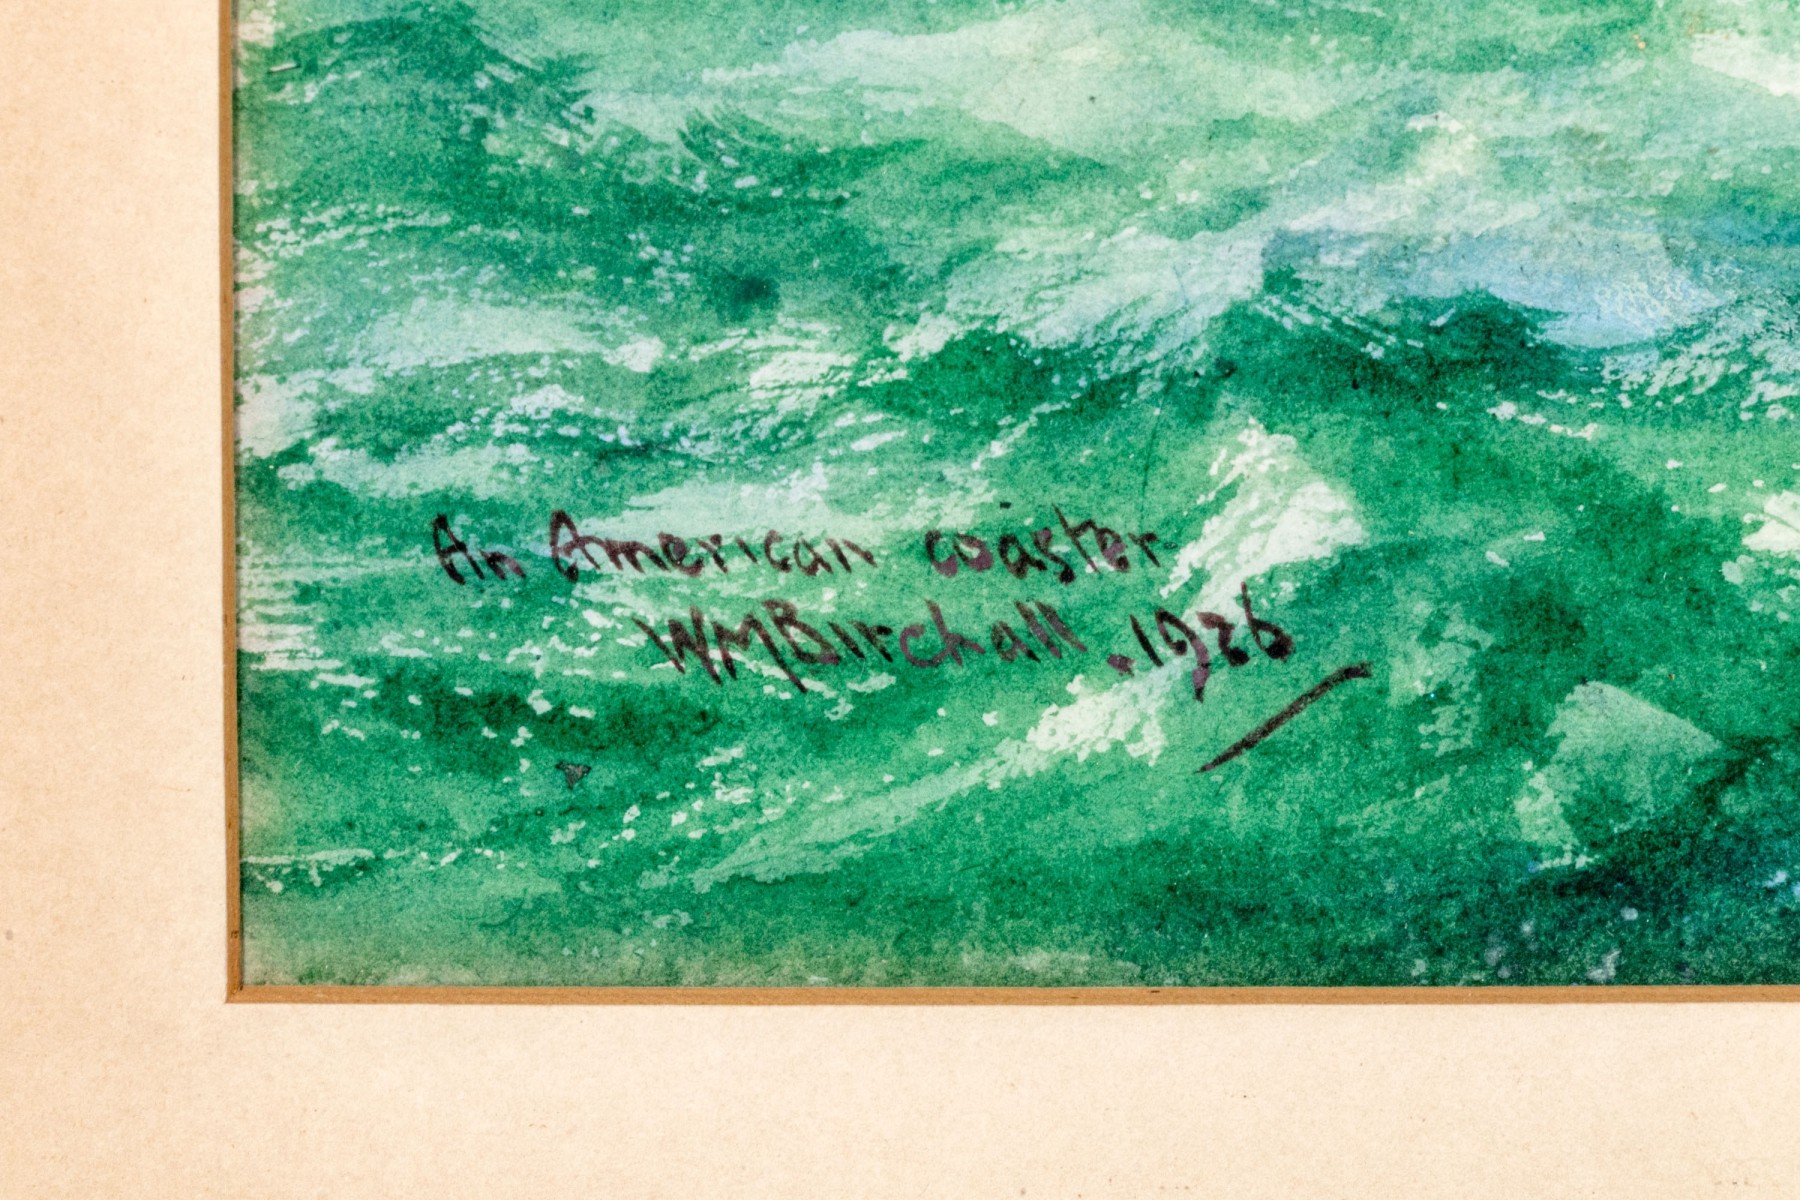 An American coaster
WMBirchall.1926